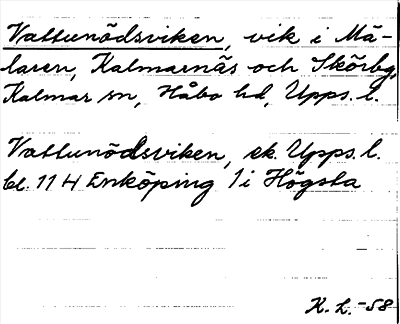 Vattunödsviken, vik i Mä-
laren, Kalmarnäs och Skörby,
Kalmar sn, Håbo hd, Upps. l.
Vattunödsviken, ek. Upps. l.
bl. 114 Enköping 1 i Högsta
K. L. -58